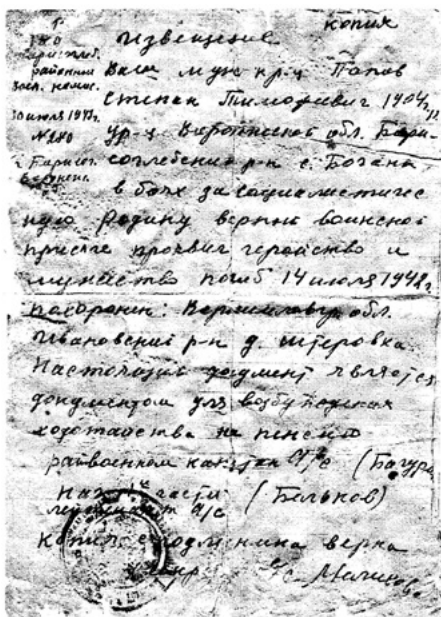 копия
Извещение
районный Ваш муж кр-ц Попов
Степан Тимофеевич 1904 г.
№ 280 ур-ц Воронежской обл. Бори-
соглебский р-н с. Богана
в боях за социалистичес
кую Родину верный воинской
присяге проявив геройство и
мужество погиб 14 июля 1942 г.
похоронен: Ворошиловгр. обл.
Ивановский р-н д. Штеровка
Настоящий документ является
документом для возбуждения
ходатайства на пенсию
райвоенком капитан а/с (Багур
нач. части (Бельков)
а/с
Копия с подлинника верна